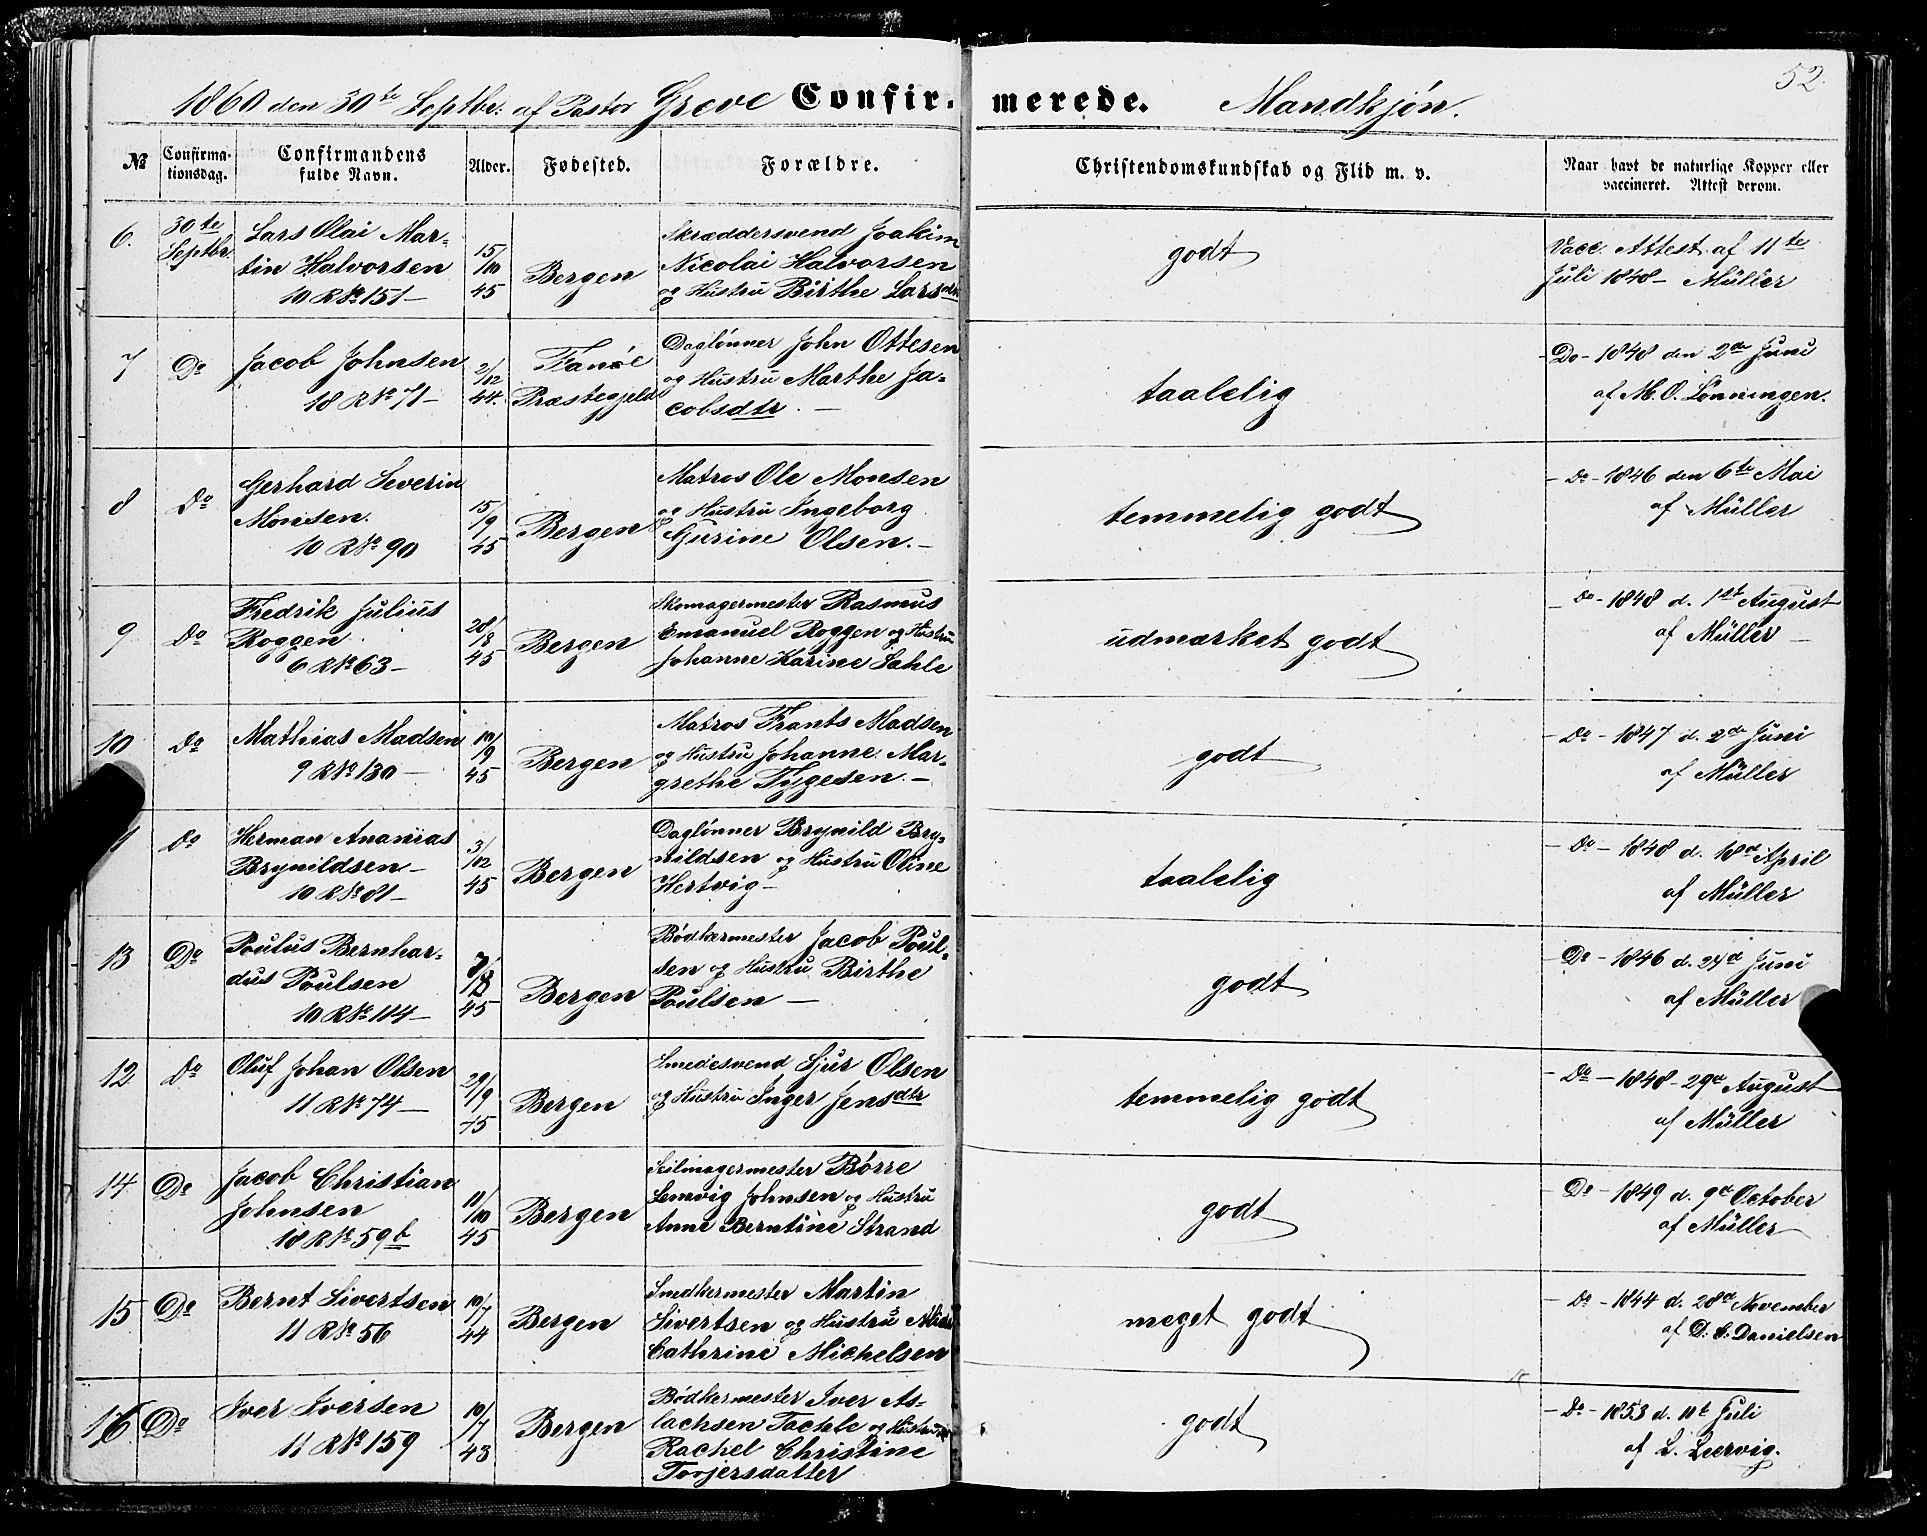 52.
1860 den 30te Septbr: af Pastor Greve Confir- merede. Mandkjøn.
№ Confirma-tionsdag. Confirmandens fulde Navn. Alder. Fødested. Forældre. Christendomskundskab og Flid m. v. Naar havt de naturlige Kopper eller vaccineret. Attest derom.
6. 30te Septbr. Lars Olai Mar- Skræddersvend Joakim Vacc. Attest af 11te
tin Halvorsen 15/10 45 Bergen Nicolai Halvorsen godt Juli 1848 - Müller
10 R № 151 - og Hustru Birthe Larsdtr
7 Do Jacob Johnsen 2/12 44. Fanöe Daglønner John Ottesen - Do - 1848 den 2de Juni
18 R № 71 - Præstegjeld og Hustru Marthe Ja- taalelig af M. O. Lønningen.
cobsdtr. -
8 Do Gerhard Severin Matros Ole Monsen - Do - 1846 den 6te Mai
Monsen. 15/9 45 Bergen og Hustru Ingeborg temmelig godt af Müller
10 R № 90 Gurine Olsen. -
9 Do Fredrik Julius Skomagermester Rasmus - Do - 1848 d. 1st August
Roggen 28/8 45 Bergen Emanuel Roggen og Hustru udmærket godt af Müller -
6 R № 63 - Johanne Karine Sahle
10 Do Mathias Madsen 10/9 45 Bergen Matros Frants Madsen - Do - 1847 d. 2de Juni
9 R № 130 - og Hustru Johanne Mar- godt af Müller
grethe Tygesen. -
Do Herman Ananias Daglønner Brynild Bry- - Do - 1848 d. 18d April
Brynildsen - 3/12 45 Bergen nildsen og Hustru Oline taalelig af Müller
10 R № 81 - Hertvig -
13 Do Poulus Bernhar- Bødkermester Jacob Poul- Do - 1846 d. 24d Juni
dus Poulsen 45 Bergen sen og Hustru Birthe godt af Müller
10 R № 114 - Poulsen -
12 Do Oluf Johan Olsen 29/9 45 Bergen Smedesvend Sjur Olsen - Do - 1848 - 29d August
11 R № 74 - og Hustru Inger Jensdtr temmelig godt af Müller
14 Do Jacob Christian Seilmagermester Børre - Do - 1849 d. 9d October
Johnsen 11/10 45 Bergen Lemvig Johnsen og Hustru godt af Müller
18 R № 59b Anne Berntine Strand
15 Do Bernt Sivertsen 10/7 44 Bergen Snedkermester Martin - Do - 1844 d. 28d November
11 R № 56 Sivertsen og Hustru meget godt af D. C. Danielsen
Cathrine Michelsen
16 Do Iver Iversen 10/7 43 Bergen Bødkermester Iver As- - Do - 1853 d. 11t Juli
11 R № 159 lachsen Tachle og Hustru godt af L. Leervig.
Rachel Christine
Torjersdatter